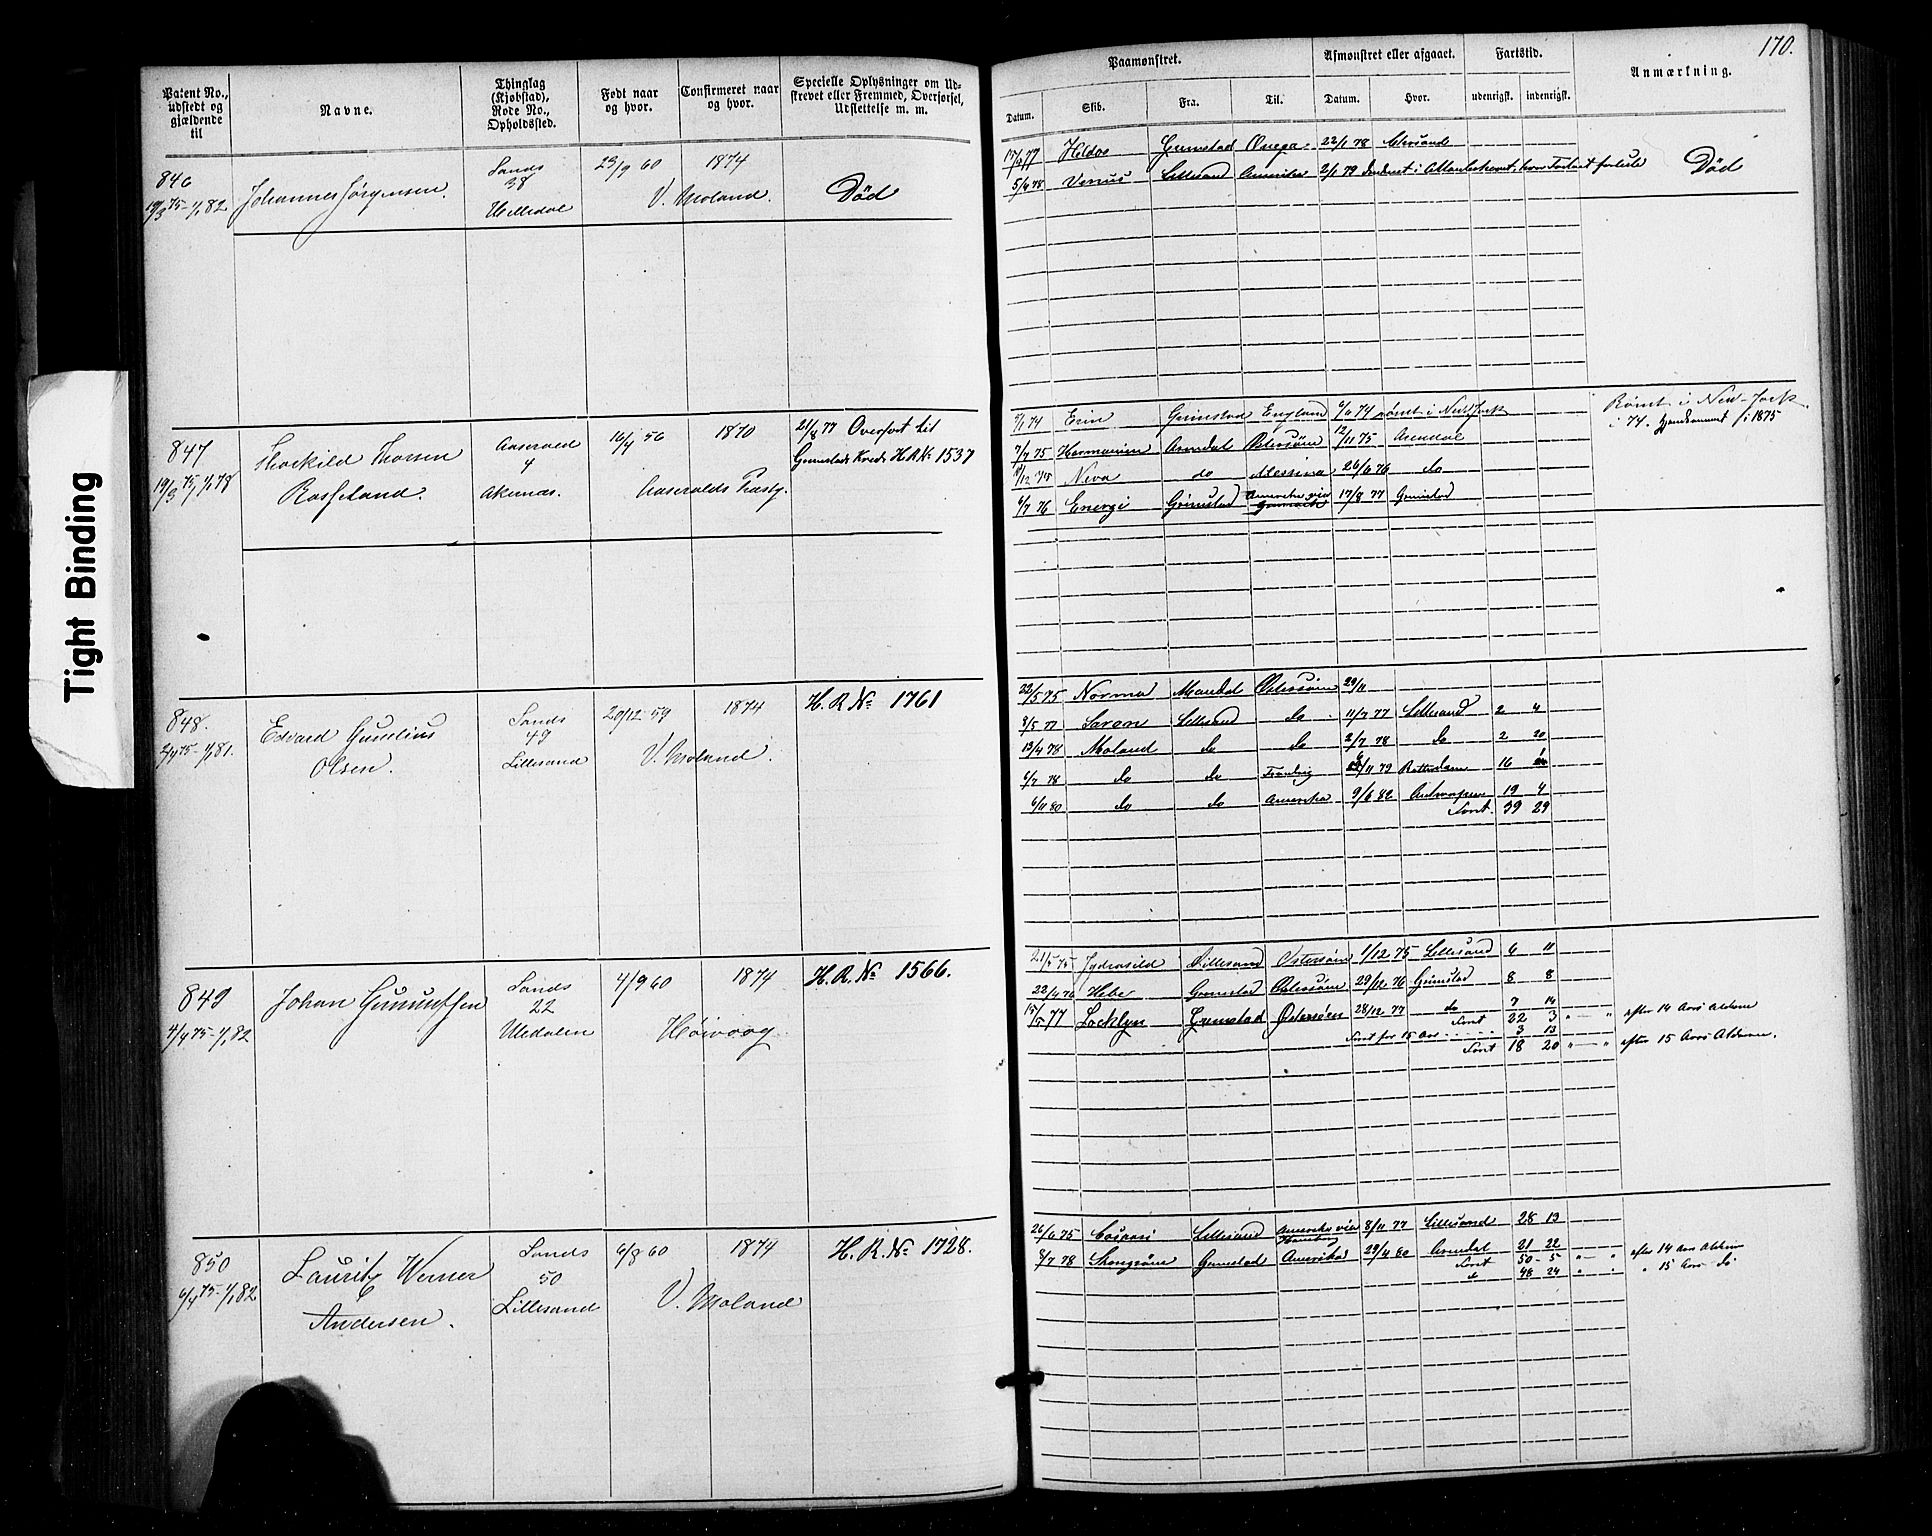 170.
Tight Binding
Patent No., udstedt og gjældende til
Navne.
Thinglag (Kjøbstad), Rode No., Opholdssted.
Født naar og hvor.
Confirmeret naar og hvor.
Specielle Oplysninger om Udstrevet eller Fremmed, Overførsel, Udslettelse m. m.
Paamønstret.
Datum.
Skib.
Fra.
Til.
Afmønstret eller afgaaet.
Datum.
Hvor.
Fartstid.
udenrigst.
indenrigst.
Anmærkning.
846
19/3 75 - 1/1 82
Johannes Jørgensen.
Sands
38
23/9 60
1874
V. Moland.
Død
Grimstad Onega 22/1 78
5/4 78 Venus Lillesand Amerika 2/1 79
Død
847
19/3 75, 1/1 78
Thorkild Thorsen
Rosseland.
Aaserald
4
Akernæs.
16/4 56
1870
Aaseralds Præstg.
21/8 77 Overført til
Grimstads Kreds H.R.N. 1537
5/1 74 Erin Grimstad England 6/6 74 rømt i New York
Rømt i New-York
i 74. Hjemkommet i 1875
7/7 75 Arendal Østersøen 12/11 75 Arendal
9/12 75 Neva do Messina 26/6 76 do
6/7 76 Energi Grimstad Amerika via 17/8 77 Grimstad
848.
2/4 75 - 1/1 81.
Edvard Gunelius
Olsen.
Sands
49
Lillesand
20/12 59
1874
V. Moland.
H. R. No 1761
22/5 75 Norma Mandal Østersøen 29/11
8/5 77 Saron Lillesand do 11/7 77 Lillesand 2 4
13/4 78 Moland do do 2/7 78 do 2 20
6/7 78 do do 11 79 Rotterdam 16
6/11 80 do do Amerika 9/6 82 Antwerpen 19 4
39 29
849
4/4 75 - 1/1 82
Johan Gunnufsen
Sands
22
Uledalen
4/9 60
1874
Høivaag
H. R. No 1566.
21/5 75 Lillesand Østersøen 1/12 75 Lillesand 6 11
22/4 76 Hebe Grimstad Østersøen 29/12 76 Grimstad 8 8
15/5 77 Locklyn Grimstad Østersøen 28/12 77 do 7 14
22 3 " " efter 14 Aars Alderen
for 15 Aar 3 13
18 20 " " efter 15 Aars Alderen.
850
6/4 75 - 1/1 82
Lauritz Werner
Andersen.
Sands
50
Lillesand
6/8 60
1874
V. Moland
H. R. No 1728.
26/6 75 Lillesand Amerika via 8/11 77 Lillesand 28 13
8/7 78 Grimstad Amerika 29/4 80 Arendal 21 22
50 5 " " efter 14 Aars Alderen
do 48 24 " " " 15 Aars do